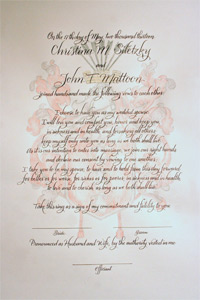 On the 17th day of May, two thousand thirteen
Christina M.
and
John T Mattoon
joined hands and made the following vows to each other:
I choose to have you as my wedded spouse.
I will love you and comfort you, honor and keep you
in sickness and in health, and forsaking all others
keep myself only unto you as long as we both shall live.
As it is our intention to enter into marriage, we join our right hands
and declare our consent by vowing to one another:
I take you to be my spouse, to have and to hold from this day forward,
for better or for worse, for richer or for poorer, in sickness and in health,
to love and to cherish, as long as we both shall live.
Take this ring as a sign of my commitment and fidelity to you
Bride Groom
Pronounced as Husband and Wife, by the authority vested in me:
Officiant